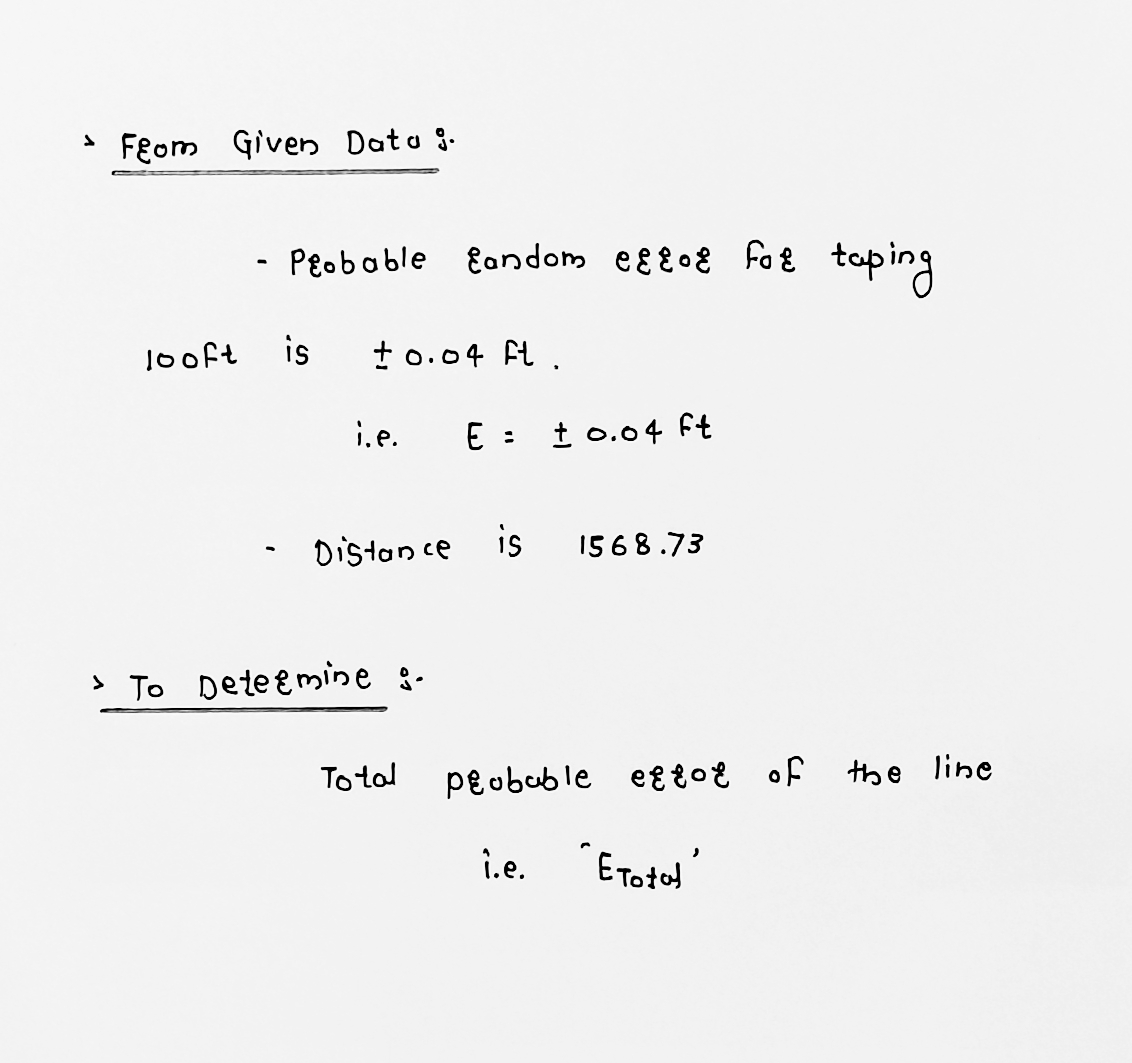 > From Given Data :-
- Probable random error for taping
100ft is ± 0.04 ft .
i.e. E = ± 0.04 ft
- Distance is 1568.73
> To Determine :-
Total probable error of the line
i.e. 'E Total'